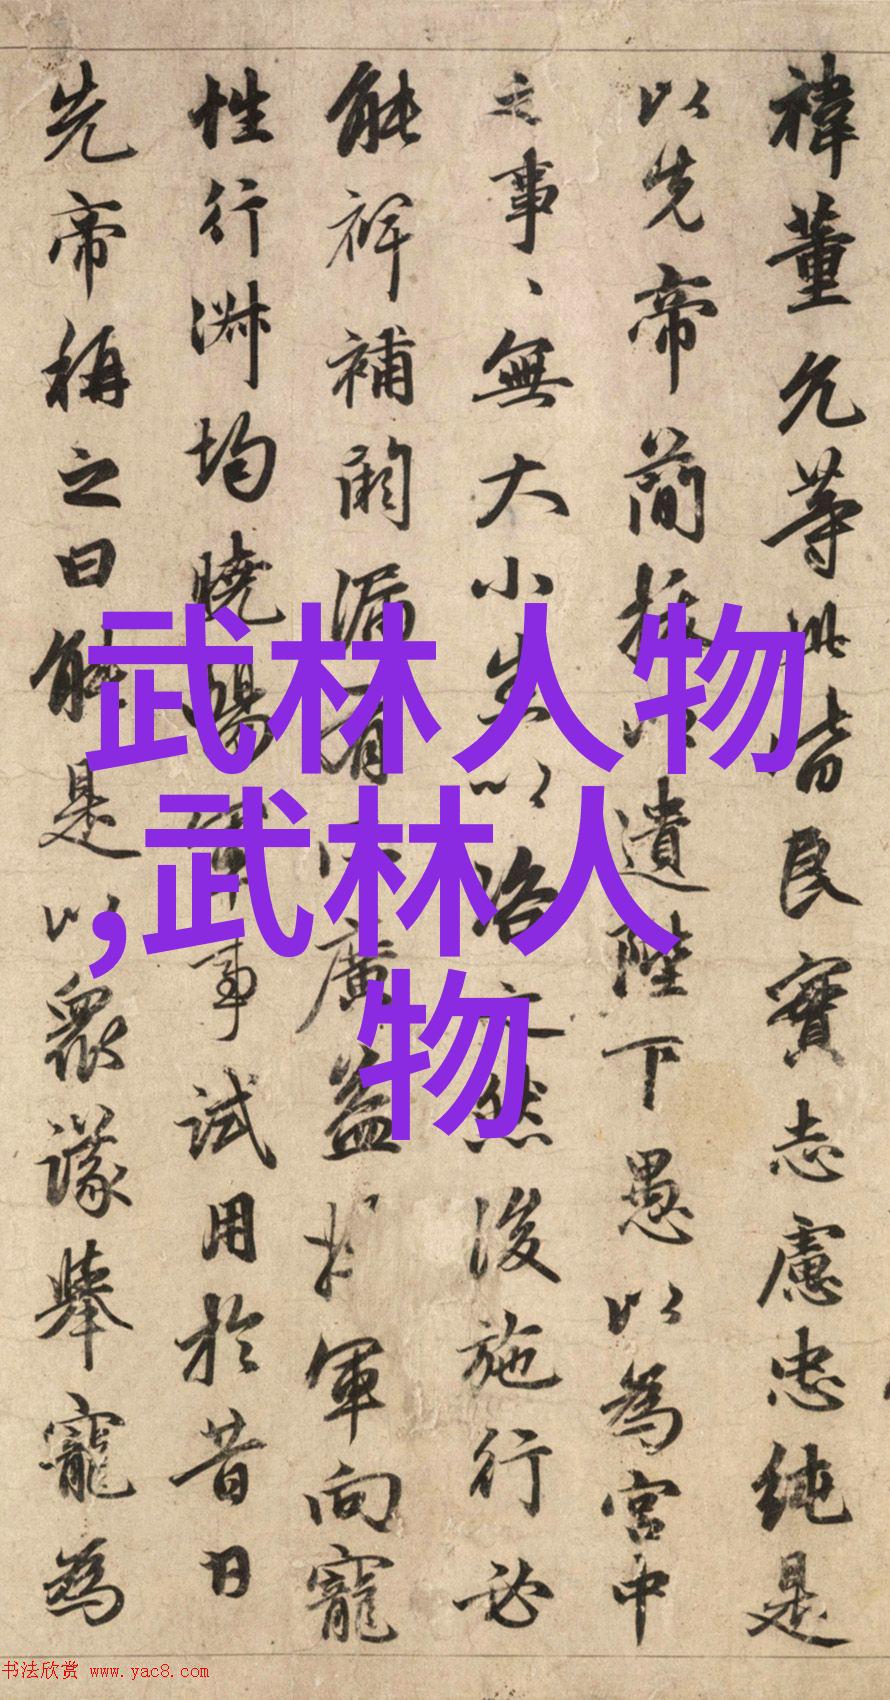 禕董允等此皆良實志慮忠純是
以先帝簡拔以遺陛下愚以為宮中
之事、無大小悉以咨之然後施行必
能裨補闕漏有所廣益將軍向寵
性行淑均曉暢軍事試用於昔日
先帝稱之曰能是以眾議舉寵為
武林人物
,武林人
物
书法欣赏 www.yac8.com